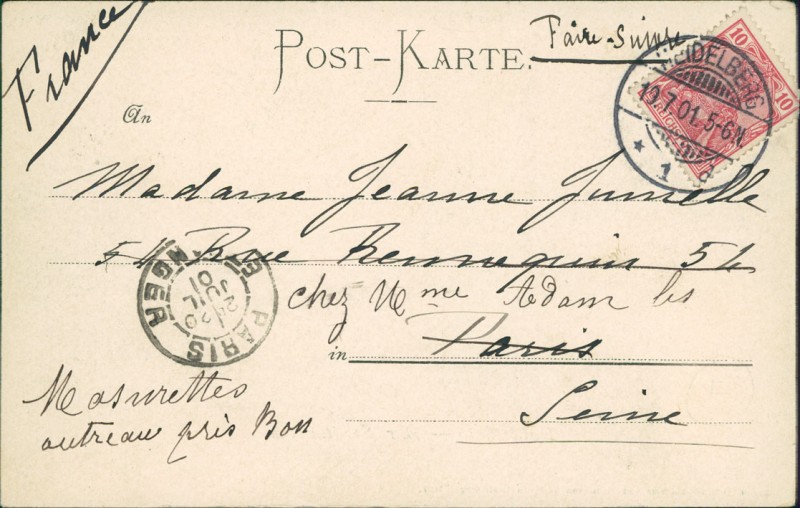 France
POST-KARTE.
Faire-Suivre
10
10
HEIDELBERG
19.7.01.5-6N.
* 1 d
An
Madame Jeanne Jumelle
54 Rue Rennequin 54
chez Mme Adam les
in Paris
Seine
Masurettes
outreau près Bon
PARIS ETRANGER
2420
JUIL
01